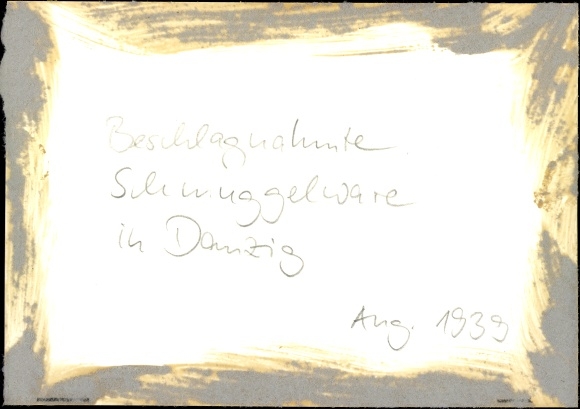 Beschlagnahmte
Schmuggelware
in Danzig
Aug. 1939